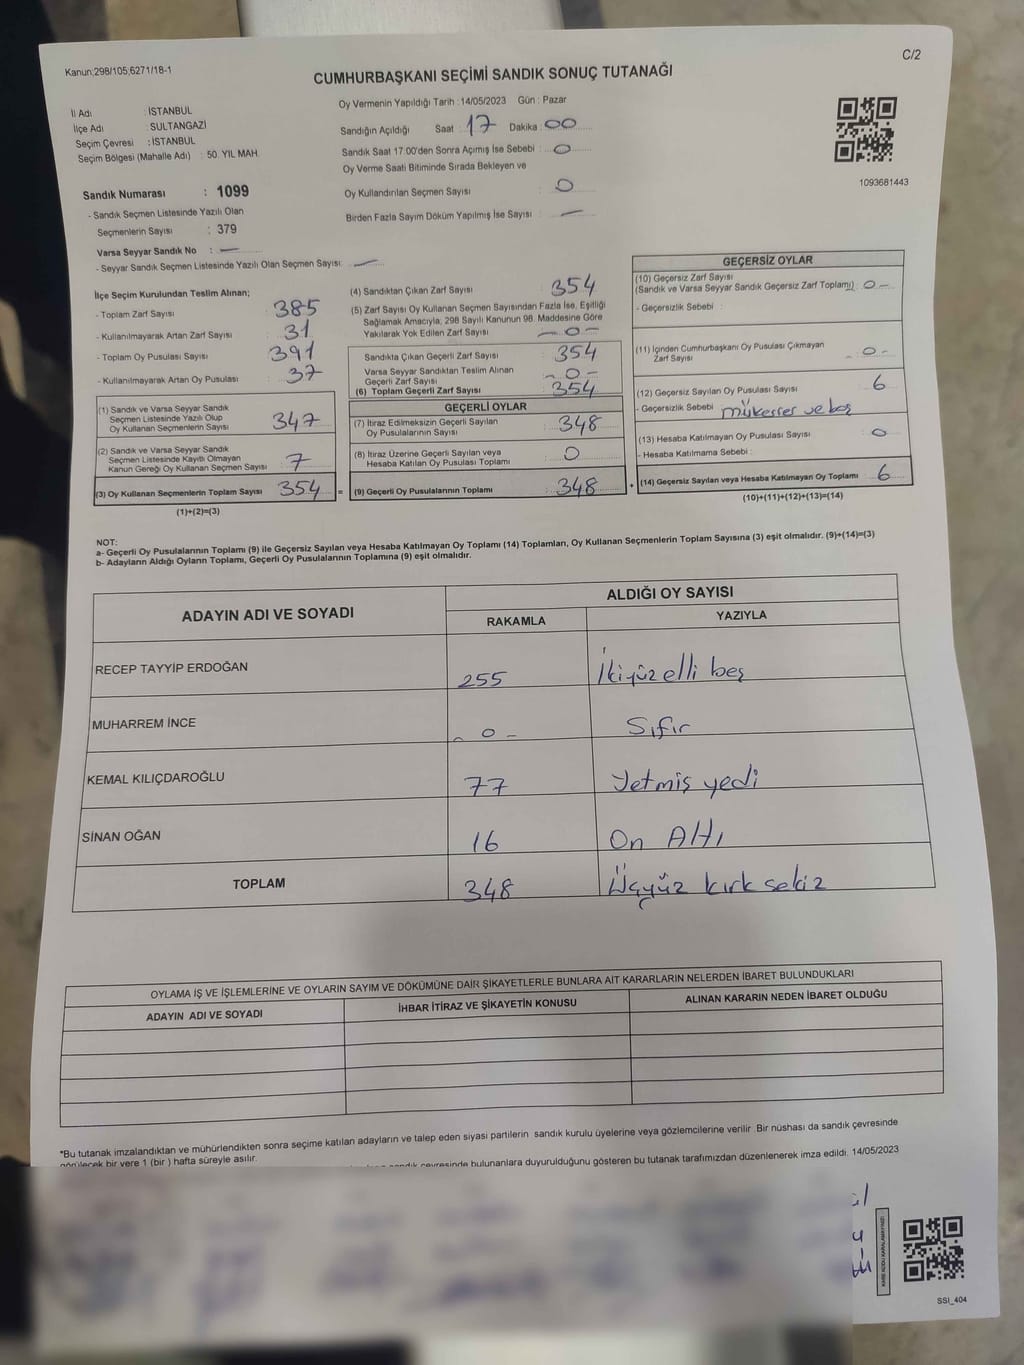 Kanun;298/105;6271/18-1
C/2
CUMHURBAŞKANI SEÇİMİ SANDIK SONUÇ TUTANAĞI
İl Adı : İSTANBUL
İlçe Adı : SULTANGAZİ
Seçim Çevresi : İSTANBUL
Seçim Bölgesi (Mahalle Adı) : 50. YIL MAH.
Sandık Numarası : 1099
- Sandık Seçmen Listesinde Yazılı Olan
Seçmenlerin Sayısı : 379
Varsa Seyyar Sandık No : —
- Seyyar Sandık Seçmen Listesinde Yazılı Olan Seçmen Sayısı: —
Oy Vermenin Yapıldığı Tarih : 14/05/2023 Gün : Pazar
Sandığın Açıldığı Saat : 17 Dakika : 00
Sandık Saat 17:00'den Sonra Açımış İse Sebebi : 0
Oy Verme Saati Bitiminde Sırada Bekleyen ve
Oy Kullandırılan Seçmen Sayısı : 0
Birden Fazla Sayım Döküm Yapılmış İse Sayısı : —
1093681443
İlçe Seçim Kurulundan Teslim Alınan;
- Toplam Zarf Sayısı : 385
- Kullanılmayarak Artan Zarf Sayısı : 31
- Toplam Oy Pusulası Sayısı : 391
- Kullanılmayarak Artan Oy Pusulası : 37
(1) Sandık ve Varsa Seyyar Sandık
Seçmen Listesinde Yazılı Olup
Oy Kullanan Seçmenlerin Sayısı : 347
(2) Sandık ve Varsa Seyyar Sandık
Seçmen Listesinde Kayıtlı Olmayan
Kanun Gereği Oy Kullanan Seçmen Sayısı : 7
(3) Oy Kullanan Seçmenlerin Toplam Sayısı : 354 =
(1)+(2)=(3)
(4) Sandıktan Çıkan Zarf Sayısı : 354
(5) Zarf Sayısı Oy Kullanan Seçmen Sayısından Fazla İse, Eşitliği
Sağlamak Amacıyla, 298 Sayılı Kanunun 98. Maddesine Göre
Yakılarak Yok Edilen Zarf Sayısı : - 0 -
Sandıkta Çıkan Geçerli Zarf Sayısı : 354
Varsa Seyyar Sandıktan Teslim Alınan
Geçerli Zarf Sayısı : - 0 -
(6) Toplam Geçerli Zarf Sayısı : 354
GEÇERLİ OYLAR
(7) İtiraz Edilmeksizin Geçerli Sayılan
Oy Pusulalarının Sayısı : 348
(8) İtiraz Üzerine Geçerli Sayılan veya
Hesaba Katılan Oy Pusulası Toplamı : 0
(9) Geçerli Oy Pusulalarının Toplamı : 348 +
GEÇERSİZ OYLAR
(10) Geçersiz Zarf Sayısı
(Sandık ve Varsa Seyyar Sandık Geçersiz Zarf Toplamı) : 0 -
- Geçersizlik Sebebi :
(11) İçinden Cumhurbaşkanı Oy Pusulası Çıkmayan
Zarf Sayısı : - 0 -
(12) Geçersiz Sayılan Oy Pusulası Sayısı : 6
- Geçersizlik Sebebi : mükerrer ve boş
(13) Hesaba Katılmayan Oy Pusulası Sayısı : 0
- Hesaba Katılmama Sebebi :
(14) Geçersiz Sayılan veya Hesaba Katılmayan Oy Toplamı : 6
(10)+(11)+(12)+(13)=(14)
NOT:
a- Geçerli Oy Pusulalarının Toplamı (9) ile Geçersiz Sayılan veya Hesaba Katılmayan Oy Toplamı (14) Toplamları, Oy Kullanan Seçmenlerin Toplam Sayısına (3) eşit olmalıdır. (9)+(14)=(3)
b- Adayların Aldığı Oyların Toplamı, Geçerli Oy Pusulalarının Toplamına (9) eşit olmalıdır.
ADAYIN ADI VE SOYADI
ALDIĞI OY SAYISI
RAKAMLA YAZIYLA
RECEP TAYYİP ERDOĞAN 255 İkiyüz elli beş
MUHARREM İNCE - 0 - Sıfır
KEMAL KILIÇDAROĞLU 77 Yetmiş yedi
SİNAN OĞAN 16 On Altı
TOPLAM 348 Üçyüz kırk sekiz
OYLAMA İŞ VE İŞLEMLERİNE VE OYLARIN SAYIM VE DÖKÜMÜNE DAİR ŞİKAYETLERLE BUNLARA AİT KARARLARIN NELERDEN İBARET BULUNDUKLARI
ADAYIN ADI VE SOYADI İHBAR İTİRAZ VE ŞİKAYETİN KONUSU ALINAN KARARIN NEDEN İBARET OLDUĞU
*Bu tutanak imzalandıktan ve mühürlendikten sonra seçime katılan adayların ve talep eden siyasi partilerin sandık kurulu üyelerine veya gözlemcilerine verilir. Bir nüshası da sandık çevresinde
görülecek bir yere 1 (bir) hafta süreyle asılır.
sandık çevresinde bulunanlara duyurulduğunu gösteren bu tutanak tarafımızdan düzenlenerek imza edildi. 14/05/2023
SSI_404